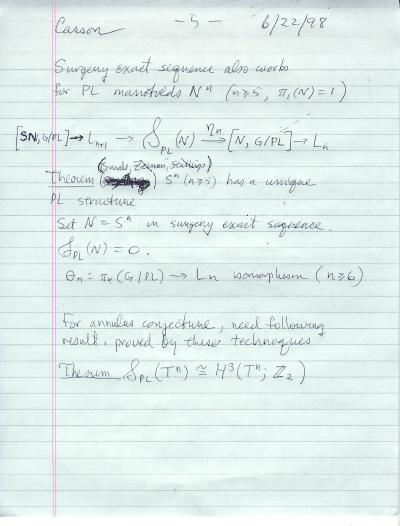 Casson - 5 - 6/22/98
Surgery exact sequence also works
for PL manifolds Nⁿ (n≥5, π₁(N)=1)
[SN, G/PL] → Lₙ₊₁ → 𝒮_PL(N) —ηₙ→ [N, G/PL] → Lₙ
(Smale, Zeeman, Stallings)
Theorem ( ) Sⁿ (n≥5) has a unique
PL structure
Set N = Sⁿ in surgery exact sequence.
𝒮_PL(N) = 0.
θₙ: πₙ(G/PL) → Lₙ isomorphism (n≥6)
For annulus conjecture, need following
result, proved by these techniques
Theorem 𝒮_PL(Tⁿ) ≅ H³(Tⁿ; Z₂)